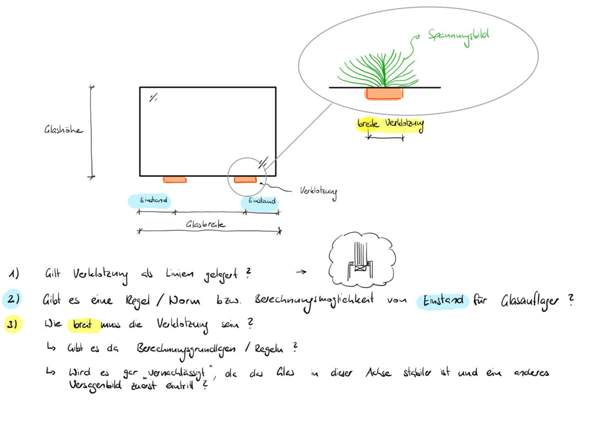 Spannungsbild
Glashöhe
breite Verklotzung
Verklotzung
Einstand
Einstand
Glasbreite
1) Gilt Verklotzung als Linien gelagert? →
2) Gibt es eine Regel / Norm bzw. Berechnungsmöglichkeit vom Einstand für Glasauflager?
3) Wie breit muss die Verklotzung sein?
↳ Gibt es da Berechnungsgrundlagen / Regeln?
↳ Wird es gar "vernachlässigt", da das Glas in dieser Achse stabiler ist und ein anderes
Versagenbild zuerst eintritt?